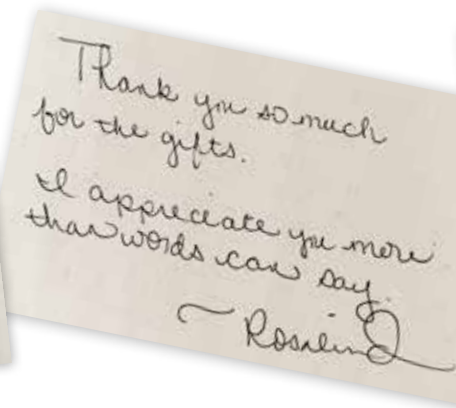 Thank you so much
for the gifts.
I appreciate you more
than words can say.
~ Rosalind